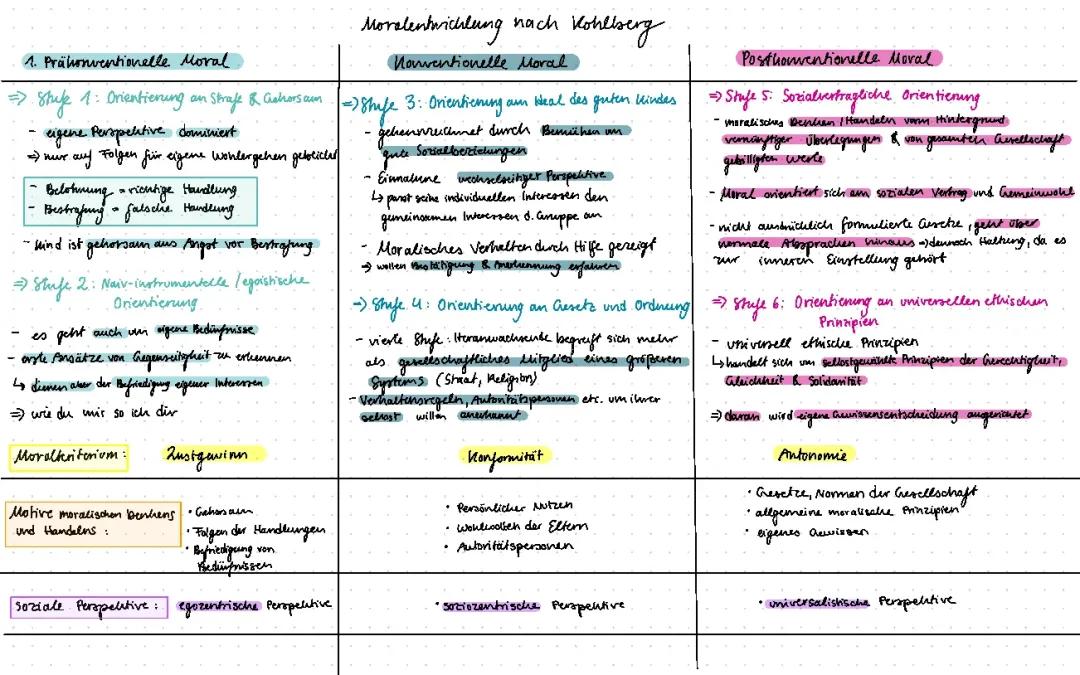 Moralentwicklung nach Kohlberg
1. Präkonventionelle Moral
⇒ Stufe 1: Orientierung an Strafe & Gehorsam
- eigene Perspektive dominiert
⇒ nur auf Folgen für eigene Wohlergehen gerichtet
- Belohnung = richtige Handlung
- Bestrafung = falsche Handlung
- Kind ist gehorsam aus Angst vor Bestrafung
⇒ Stufe 2: Naiv-instrumentelle / egoistische
Orientierung
- es geht auch um eigene Bedürfnisse
- erste Ansätze von Gegenseitigkeit zu erkennen
↳ dienen aber der Befriedigung eigener Interessen
⇒ wie du mir so ich dir
Moralkriterium: Lustgewinn
Motive moralischen Denkens
und Handelns:
• Gehorsam
• Folgen der Handlungen
• Befriedigung von
Bedürfnissen
soziale Perspektive: egozentrische Perspektive
Konventionelle Moral
⇒ Stufe 3: Orientierung am Ideal des guten Kindes
- gekennzeichnet durch Bemühen um
gute Sozialbeziehungen
- Einnahme wechselseitiger Perspektive
↳ passt seine individuellen Interessen den
gemeinsamen Interessen d. Gruppe an
- Moralisches Verhalten durch Hilfe gezeigt
→ wollen Bestätigung & Anerkennung erfahren
⇒ Stufe 4: Orientierung an Gesetz und Ordnung
- vierte Stufe: Heranwachsende begreift sich mehr
als gesellschaftliches Mitglied eines größeren
Systems (Staat, Religion)
- Verhaltensregeln, Autoritätspersonen etc. um ihrer
selbst willen anerkannt
Konformität
• Persönlicher Nutzen
• Wohlwollen der Eltern
• Autoritätspersonen
• soziozentrische Perspektive
Postkonventionelle Moral
⇒ Stufe 5: Sozialvertragliche Orientierung
- moralisches Denken / Handeln vorm Hintergrund
vernünftiger Überlegungen & von gesamten Gesellschaft
gebilligten Werte
- Moral orientiert sich am sozialen Vertrag und Gemeinwohl
- nicht ausdrücklich formulierte Gesetze, geht über
normale Absprachen hinaus ⇒ dennoch Haltung, da es
zur inneren Einstellung gehört
⇒ Stufe 6: Orientierung an universellen ethischen
Prinzipien
- universell ethische Prinzipien
↳ handelt sich um selbstgewählte Prinzipien der Gerechtigkeit,
Gleichheit & Solidarität
⇒ daran wird eigene Gewissensentscheidung ausgerichtet
Autonomie
• Gesetze, Normen der Gesellschaft
• allgemeine moralische Prinzipien
• eigenes Gewissen
• universalistische Perspektive